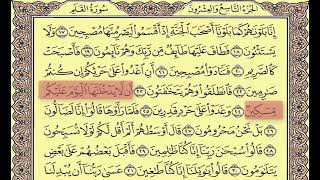 الجزء التاسع والعشرون سورة القلم
إِنَّا بَلَوْنَٰهُمْ كَمَا بَلَوْنَآ أَصْحَٰبَ ٱلْجَنَّةِ إِذْ أَقْسَمُوا۟ لَيَصْرِمُنَّهَا مُصْبِحِينَ ١٧ وَلَا
يَسْتَثْنُونَ ١٨ فَطَافَ عَلَيْهَا طَآئِفٌ مِّن رَّبِّكَ وَهُمْ نَآئِمُونَ ١٩ فَأَصْبَحَتْ
كَٱلصَّرِيمِ ٢٠ فَتَنَادَوْا۟ مُصْبِحِينَ ٢١ أَنِ ٱغْدُوا۟ عَلَىٰ حَرْثِكُمْ إِن كُنتُمْ
صَٰرِمِينَ ٢٢ فَٱنطَلَقُوا۟ وَهُمْ يَتَخَٰفَتُونَ ٢٣ أَن لَّا يَدْخُلَنَّهَا ٱلْيَوْمَ عَلَيْكُم
مِّسْكِينٌ ٢٤ وَغَدَوْا۟ عَلَىٰ حَرْدٍ قَٰدِرِينَ ٢٥ فَلَمَّا رَأَوْهَا قَالُوٓا۟ إِنَّا لَضَآلُّونَ
٢٦ بَلْ نَحْنُ مَحْرُومُونَ ٢٧ قَالَ أَوْسَطُهُمْ أَلَمْ أَقُل لَّكُمْ لَوْلَا تُسَبِّحُونَ
٢٨ قَالُوا۟ سُبْحَٰنَ رَبِّنَآ إِنَّا كُنَّا ظَٰلِمِينَ ٢٩ فَأَقْبَلَ بَعْضُهُمْ عَلَىٰ بَعْضٍ
يَتَلَٰوَمُونَ ٣٠ قَالُوا۟ يَٰوَيْلَنَآ إِنَّا كُنَّا طَٰغِينَ ٣١ عَسَىٰ رَبُّنَآ أَن يُبْدِلَنَا